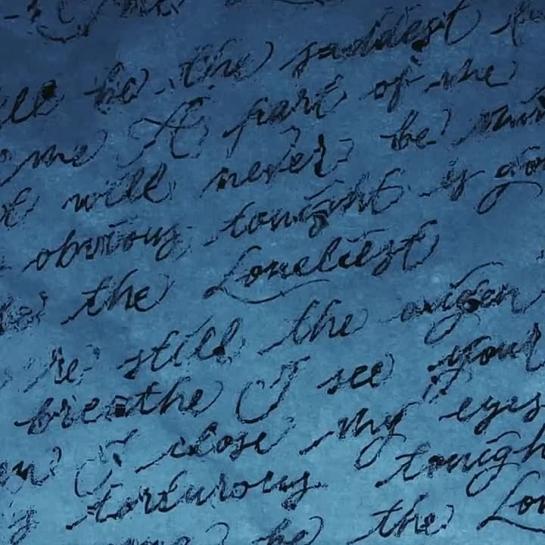 be the saddest
me A part of me
will never be
obvious tonight is
the Loneliest
re still the oxigen
breathe I see your
I close my eyes
torturous tonigh
be the Lon